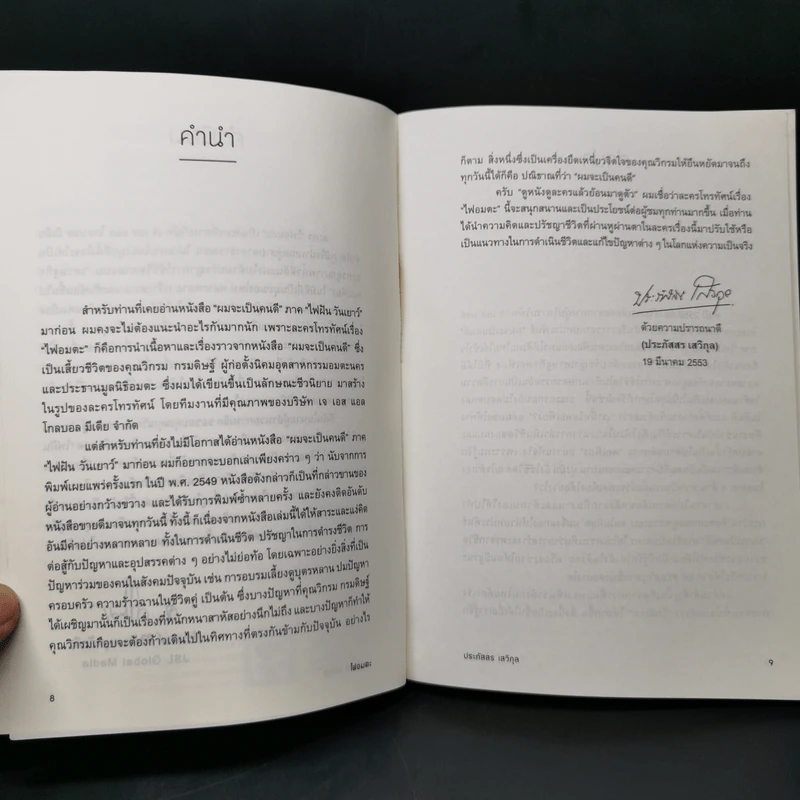 คำนำ
สำหรับท่านที่เคยอ่านหนังสือ "ผมจะเป็นคนดี" ภาค "ไฟฝัน วันเยาว์"
มาก่อน ผมคงจะไม่ต้องแนะนำอะไรกันมากนัก เพราะละครโทรทัศน์เรื่อง
"ไฟอมตะ" ก็คือการนำเนื้อหาและเรื่องราวจากหนังสือ "ผมจะเป็นคนดี" ซึ่ง
เป็นเสี้ยวชีวิตของคุณวิกรม กรมดิษฐ์ ผู้ก่อตั้งนิคมอุตสาหกรรมอมตะนคร
และประธานมูลนิธิอมตะ ซึ่งผมได้เขียนขึ้นเป็นลักษณะชีวนิยาย มาสร้าง
ในรูปของละครโทรทัศน์ โดยทีมงานที่มีคุณภาพของบริษัท เจ เอส แอล
โกลบอล มีเดีย จำกัด
แต่สำหรับท่านที่ยังไม่มีโอกาสได้อ่านหนังสือ "ผมจะเป็นคนดี" ภาค
"ไฟฝัน วันเยาว์" มาก่อน ผมก็อยากจะบอกเล่าเพียงคร่าว ๆ ว่า นับจากการ
พิมพ์เผยแพร่ครั้งแรก ในปี พ.ศ. 2549 หนังสือดังกล่าวก็เป็นที่กล่าวขานของ
ผู้อ่านอย่างกว้างขวาง และได้รับการพิมพ์ซ้ำหลายครั้ง และยังคงติดอันดับ
หนังสือขายดีมาจนทุกวันนี้ ทั้งนี้ ก็เนื่องจากหนังสือเล่มนี้ได้ให้สาระและแง่คิด
อันมีค่าอย่างหลากหลาย ทั้งในการดำเนินชีวิต ปรัชญาในการดำรงชีวิต การ
ต่อสู้กับปัญหาและอุปสรรคต่าง ๆ อย่างไม่ย่อท้อ โดยเฉพาะอย่างยิ่งสิ่งที่เป็น
ปัญหาร่วมของคนในสังคมปัจจุบัน เช่น การอบรมเลี้ยงดูบุตรหลาน ปมปัญหา
ครอบครัว ความร้าวฉานในชีวิตคู่ เป็นต้น ซึ่งบางปัญหาที่คุณวิกรม กรมดิษฐ์
ได้เผชิญมานั้นก็เป็นเรื่องที่หนักหนาสาหัสอย่างนึกไม่ถึง และบางปัญหาก็ทำให้
คุณวิกรมเกือบจะต้องก้าวเดินไปในทิศทางที่ตรงกันข้ามกับปัจจุบัน อย่างไร
ไฟอมตะ
8
ก็ตาม สิ่งหนึ่งซึ่งเป็นเครื่องยึดเหนี่ยวจิตใจของคุณวิกรมให้ยืนหยัดมาจนถึง
ทุกวันนี้ได้ก็คือ ปณิธานที่ว่า "ผมจะเป็นคนดี"
ครับ "ดูหนังดูละครแล้วย้อนมาดูตัว" ผมเชื่อว่าละครโทรทัศน์เรื่อง
"ไฟอมตะ" นี้จะสนุกสนานและเป็นประโยชน์ต่อผู้ชมทุกท่านมากขึ้น เมื่อท่าน
ได้นำความคิดและปรัชญาชีวิตที่ผ่านหูผ่านตาในละครเรื่องนี้มาปรับใช้หรือ
เป็นแนวทางในการดำเนินชีวิตและแก้ไขปัญหาต่าง ๆ ในโลกแห่งความเป็นจริง
ด้วยความปรารถนาดี
(ประภัสสร เสวิกุล)
19 มีนาคม 2553
ประภัสสร เสวิกุล
9